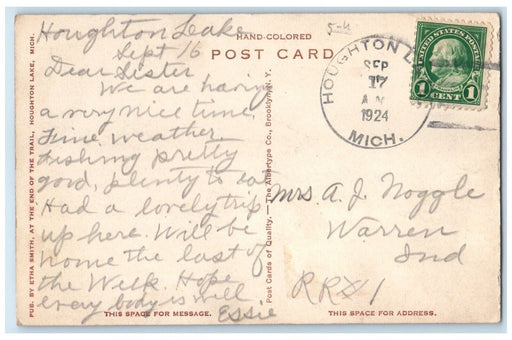 HAND-COLORED
POST CARD
5-4
Houghton Lake
Sept 16
Dear Sister
We are having
a very nice time.
Fine weather
Fishing pretty
good, plenty to eat
Had a lovely trip
up here. Will be
home the last of
the Week. Hope
every body is well
Essie
THIS SPACE FOR MESSAGE.
PUB. BY ETHA SMITH, AT THE END OF THE TRAIL, HOUGHTON LAKE, MICH.
Post Cards of Quality.—The Albertype Co., Brooklyn, N. Y.
HOUGHTON L
SEP
17
A.M.
1924
MICH.
UNITED STATES POSTAGE
1 CENT 1
Mrs A. J. Noggle
Warren
Ind
RR#1
THIS SPACE FOR ADDRESS.